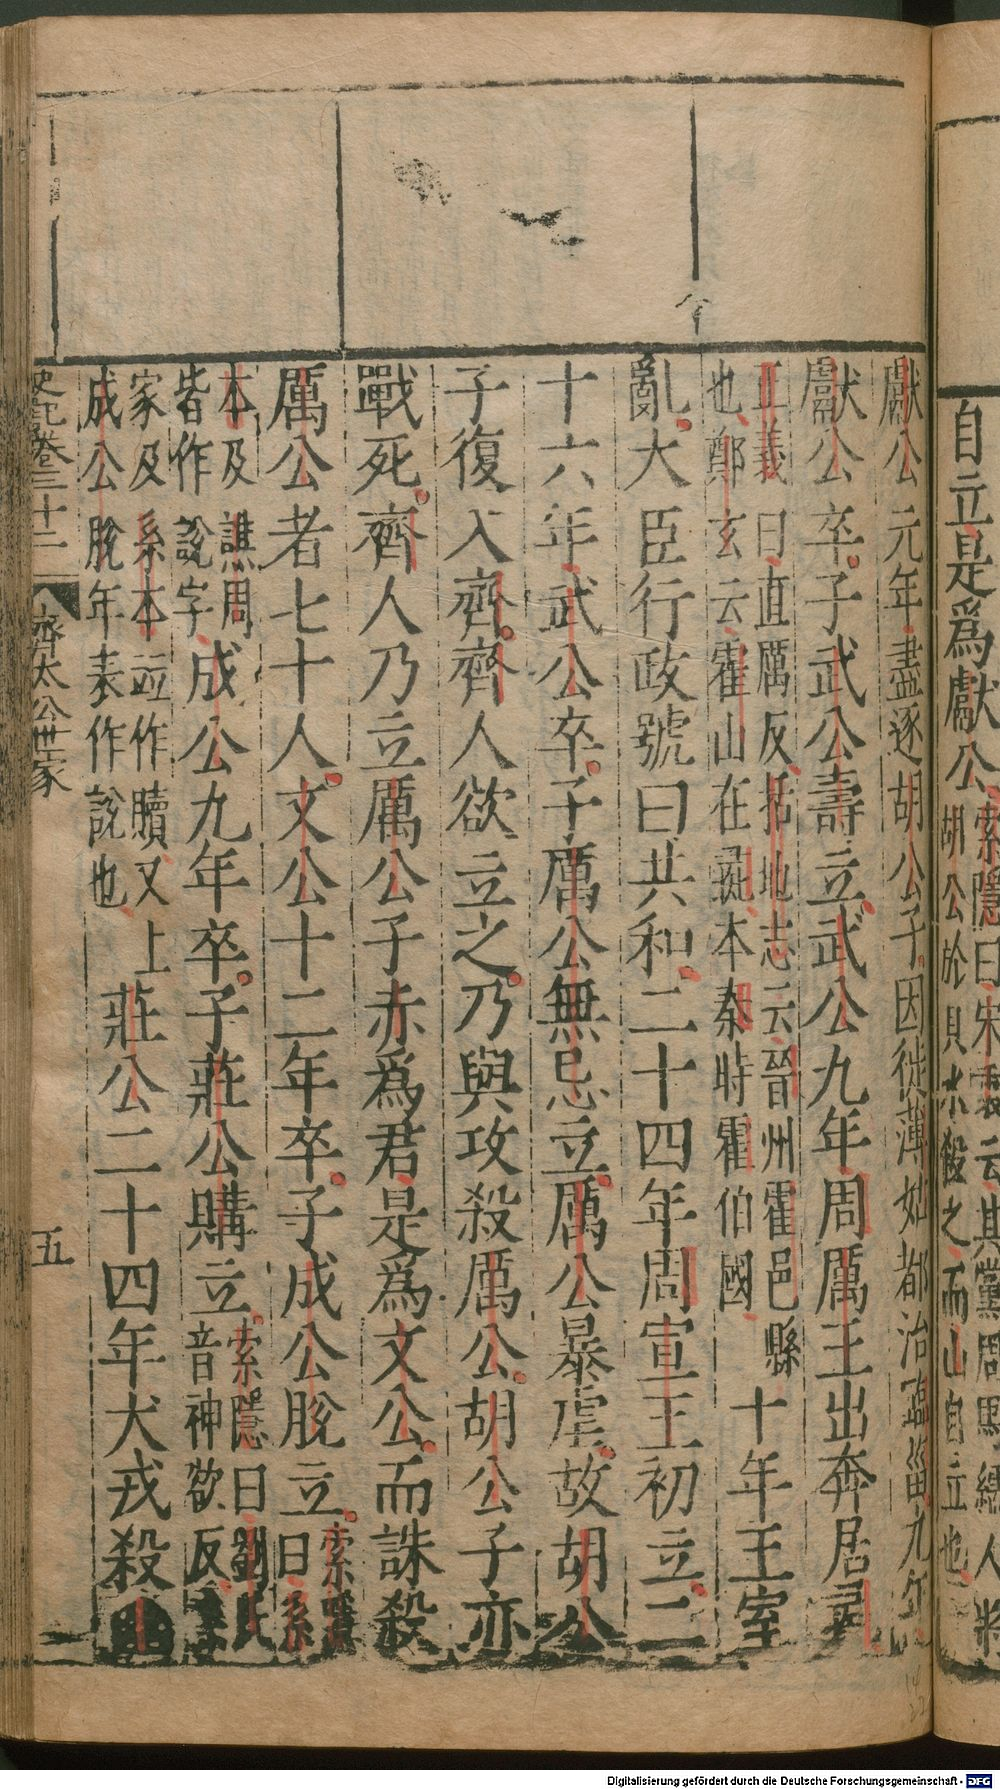 自立是爲獻公索隱曰宋衷云其黨周馬繻人將
胡公於貝水殺之而山自立也
獻公元年盡逐胡公子因徙薄姑都治臨菑九年
獻公卒子武公壽立武公九年周厲王出奔居彘
正義曰直厲反括地志云晉州霍邑縣
也鄭玄云霍山在彘本秦時霍伯國
十年王室
亂大臣行政號曰共和二十四年周宣王初立二
十六年武公卒子厲公無忌立厲公暴虐故胡公
子復入齊齊人欲立之乃與攻殺厲公胡公子亦
戰死齊人乃立厲公子赤爲君是爲文公而誅殺
厲公者七十人文公十二年卒子成公脫立索隱
曰系
本及譙周
皆作說字
成公九年卒子莊公購立索隱曰劉氏
音神欲反
家及系本並作贖又上
成公脫年表作說也
莊公二十四年犬戎殺幽
史記卷三十二
齊太公世家
五
Digitalisierung gefördert durch die Deutsche Forschungsgemeinschaft - DFG